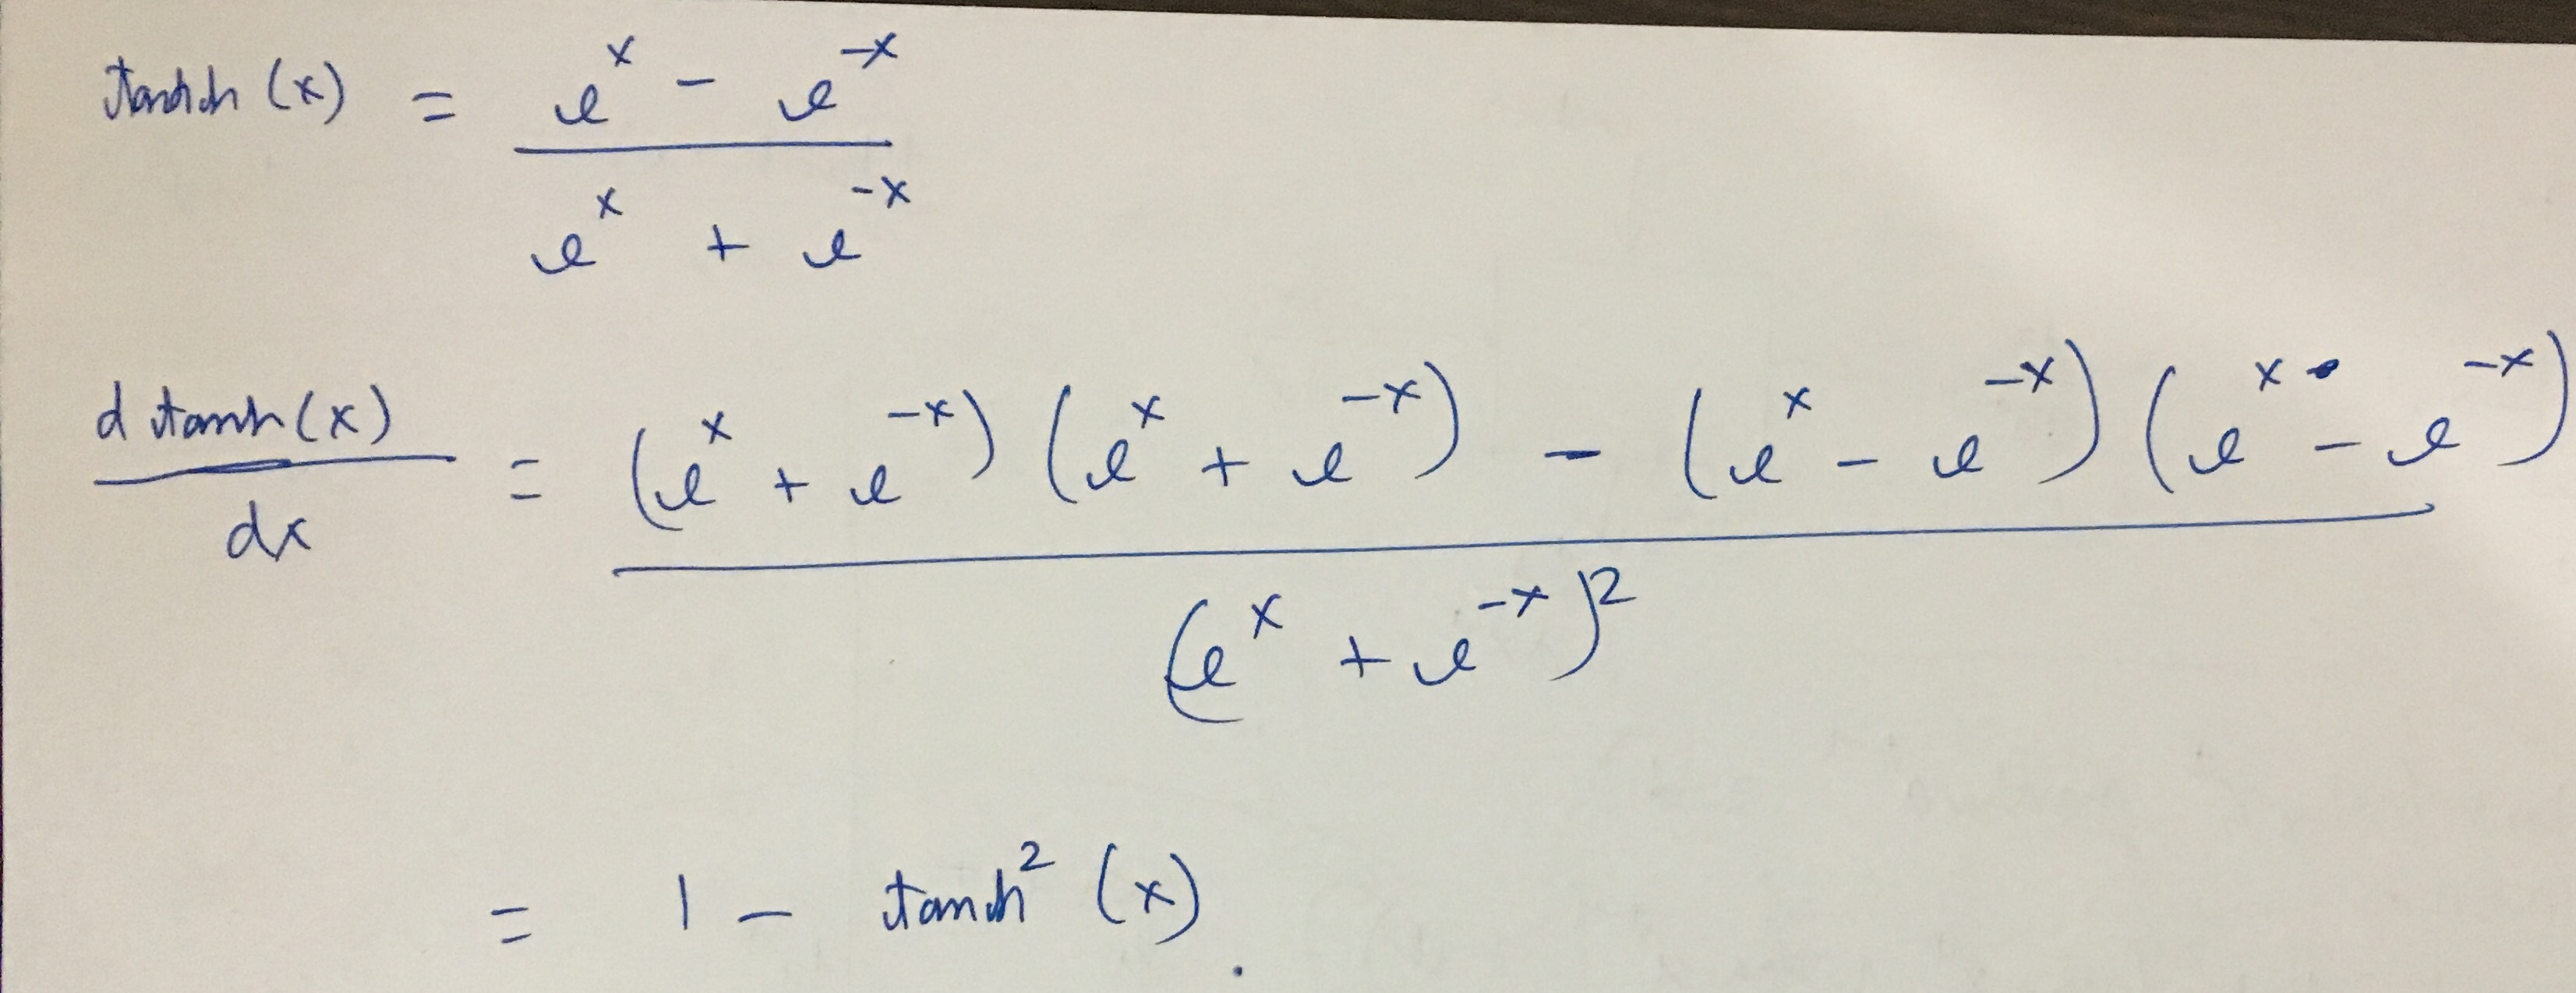 tanh (x) = (e^x - e^-x) / (e^x + e^-x)
d tanh(x) / dx = ((e^x + e^-x) (e^x + e^-x) - (e^x - e^-x) (e^x - e^-x)) / (e^x + e^-x)^2
= 1 - tanh^2 (x).